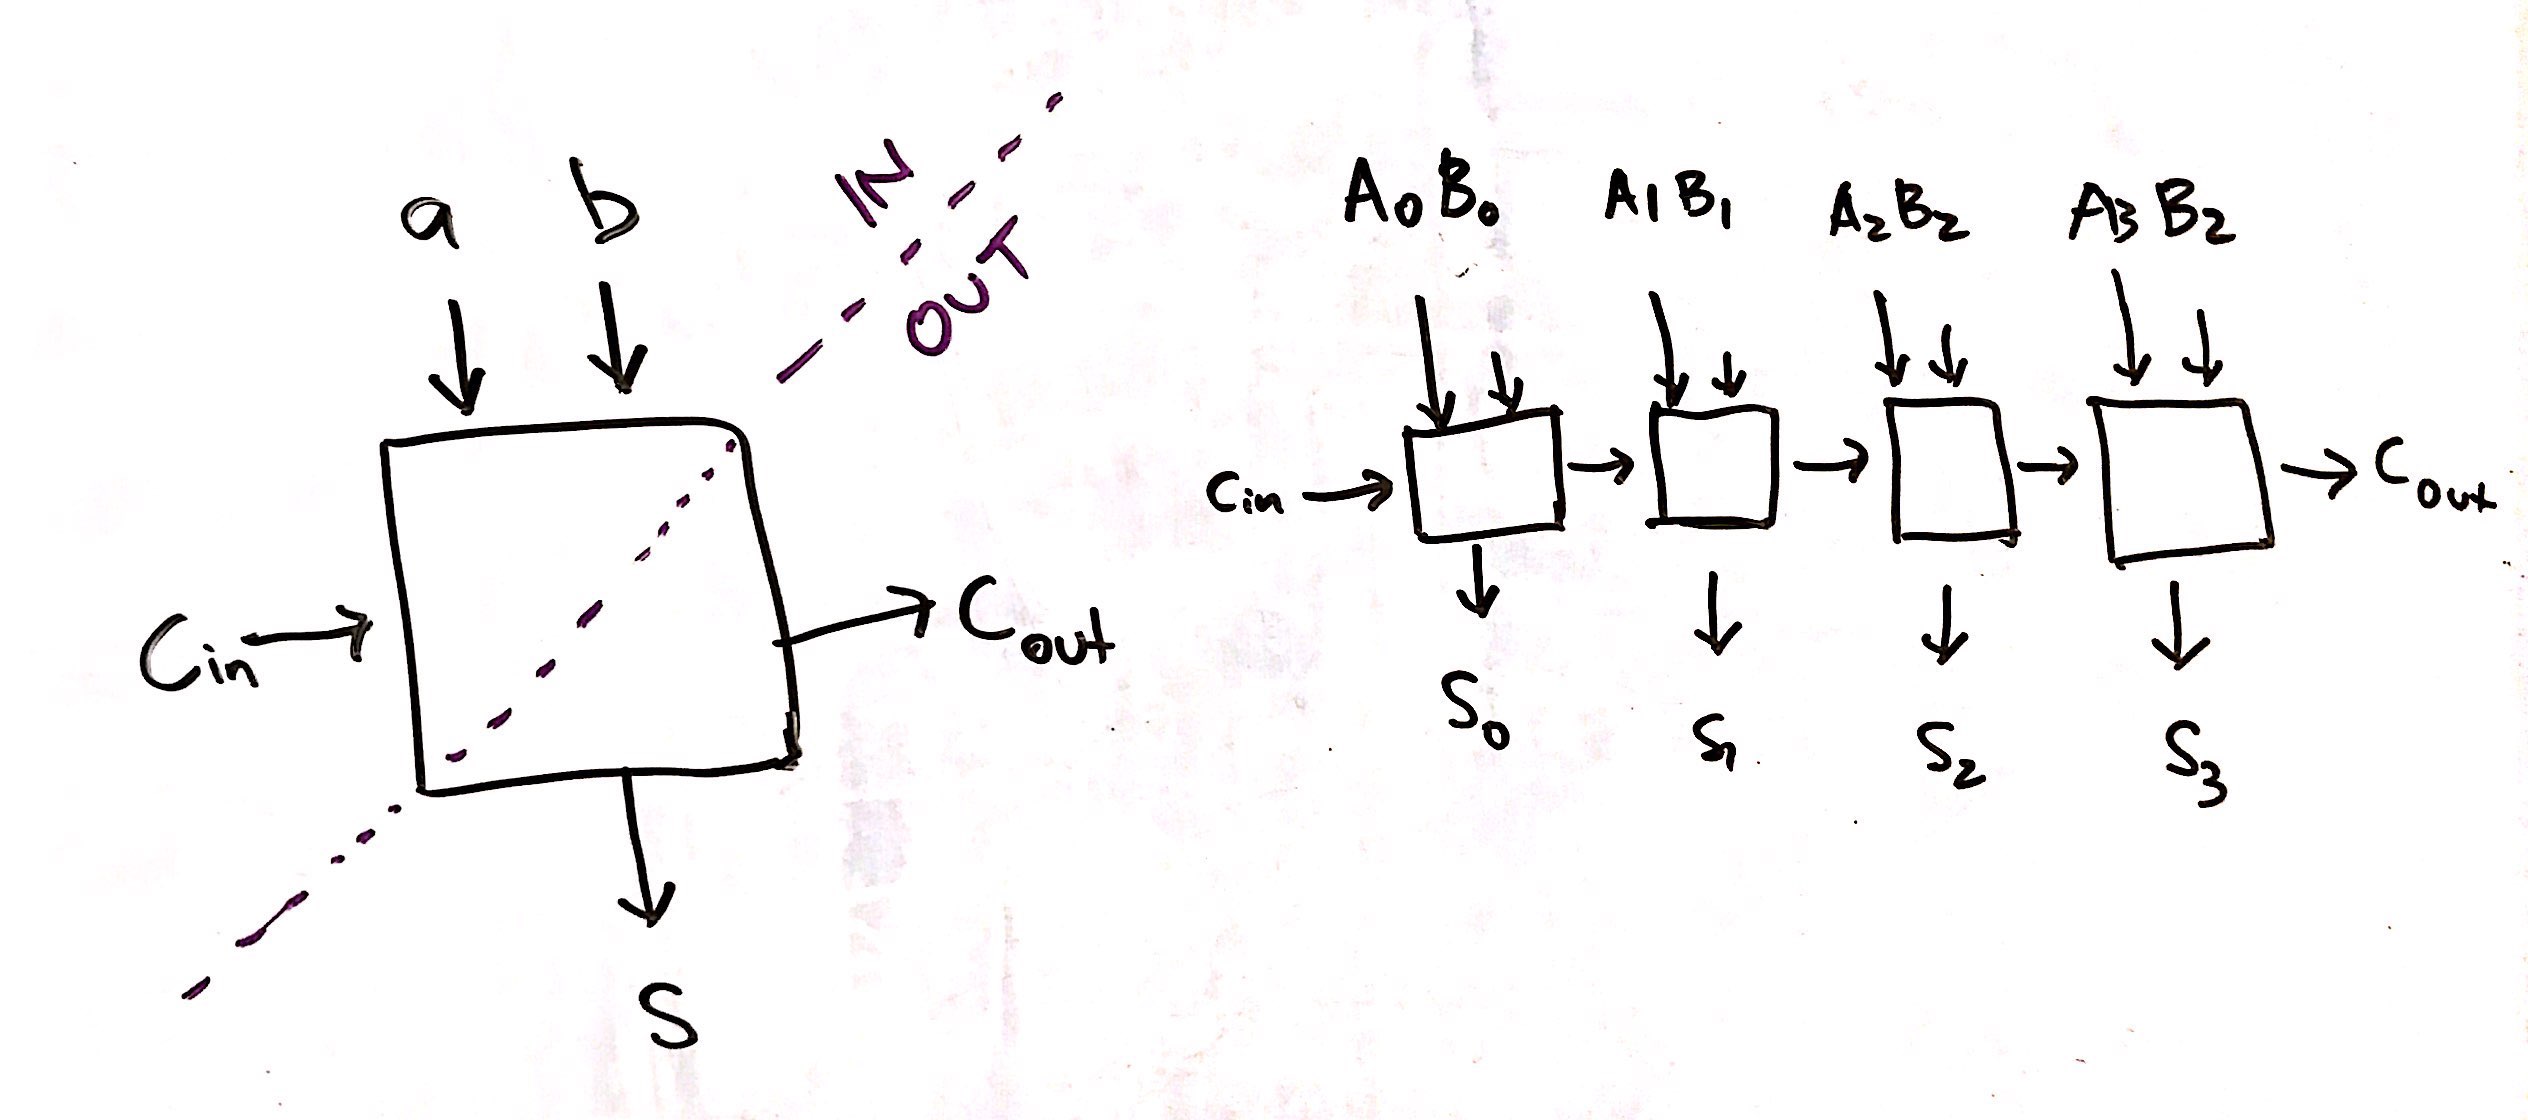 a b
IN
OUT
Cin
Cout
S
A0 B0 A1 B1 A2 B2 A3 B2
Cin
Cout
S0 S1 S2 S3